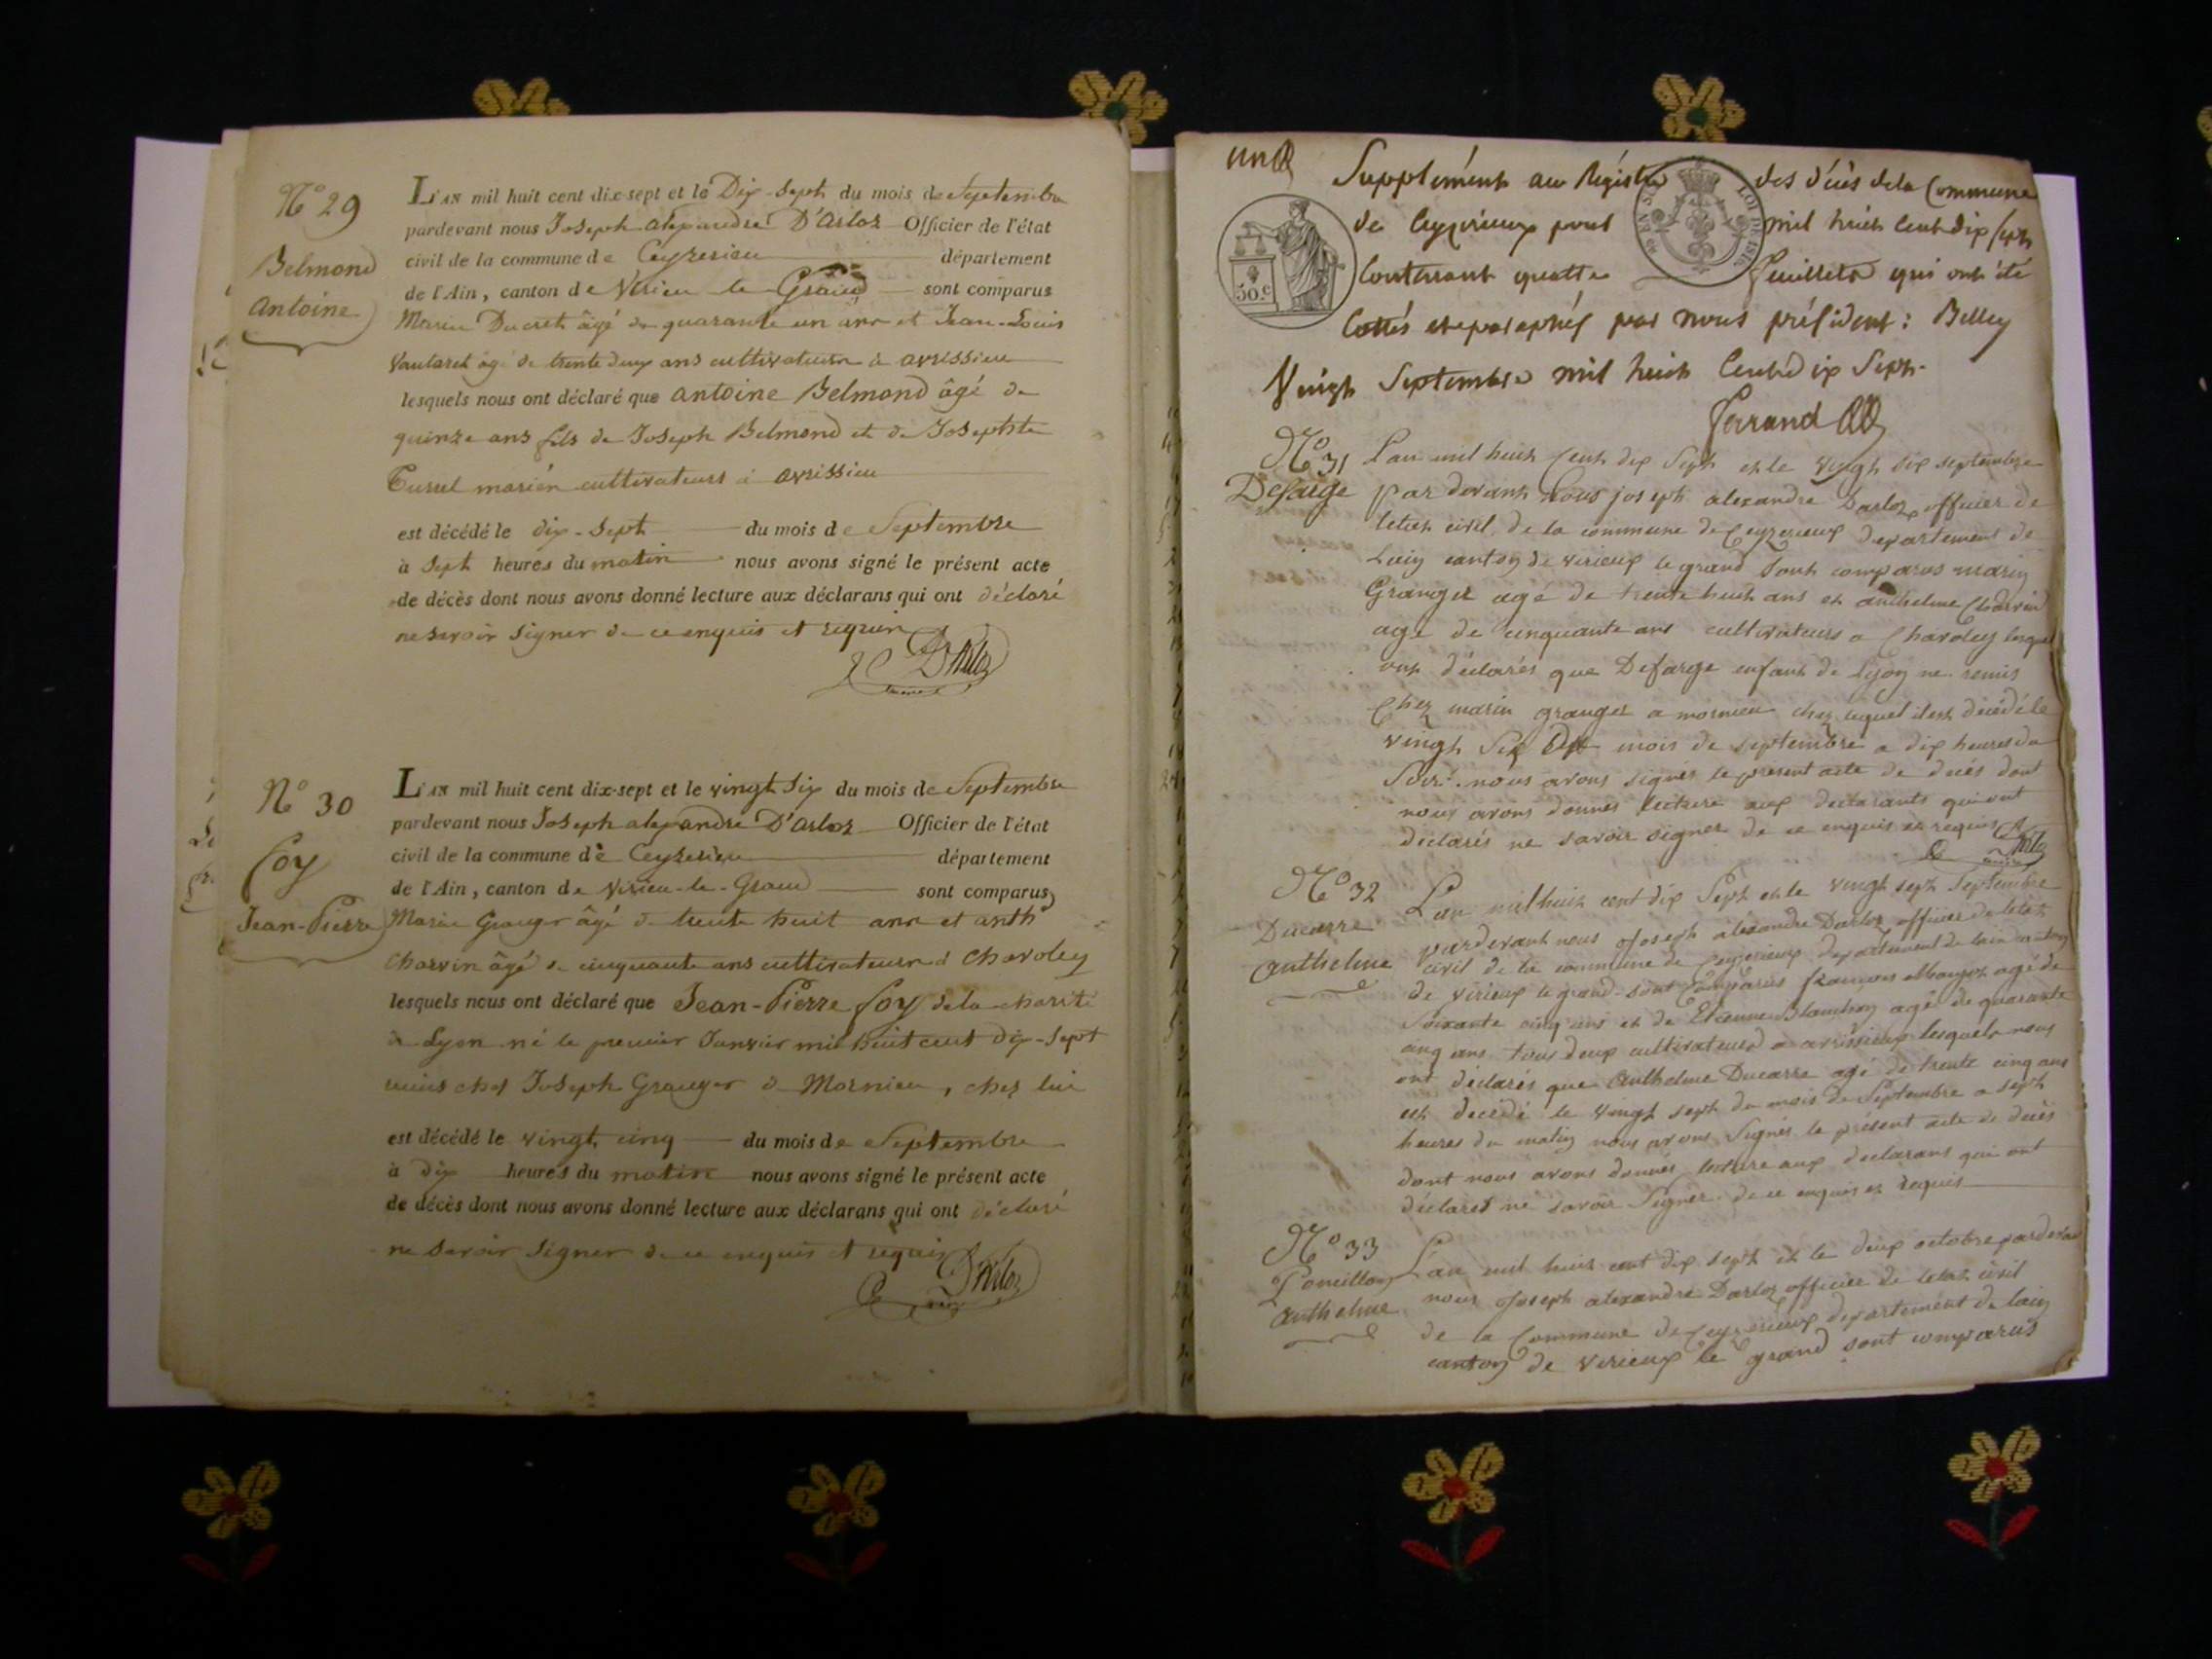 N° 29
Belmond
antoine
L'AN mil huit cent dix-sept et le Dix-sept du mois de Septembre
pardevant nous Joseph alexandre D'arloz Officier de l'état
civil de la commune de Ceyzerieu département
de l'Ain, canton de Virieu-le-Grand sont comparus
Marin Ducret âgé de quarante un ans et Jean-Louis
Vautaret âgé de trente deux ans cultivateurs à avrissieu
lesquels nous ont déclaré que antoine Belmond âgé de
quinze ans fils de Joseph Belmond et de Josephte
mariés cultivateurs à avrissieu
est décédé le dix-sept du mois de Septembre
à Sept heures du matin nous avons signé le présent acte
de décès dont nous avons donné lecture aux déclarans qui ont déclaré
ne savoir signer de ce enquis et requis
D'Arloz
N° 30
foy
Jean-Pierre
L'AN mil huit cent dix-sept et le vingt six du mois de Septembre
pardevant nous Joseph alexandre D'arloz Officier de l'état
civil de la commune de Ceyzerieu département
de l'Ain, canton de Virieu-le-Grand sont comparus
Marin Granger âgé de trente huit ans et anth
Charvin âgé de cinquante ans cultivateurs à Charoley
lesquels nous ont déclaré que Jean-Pierre foy de la charité
de Lyon né le premier Janvier mil huit cent dix-sept
remis chez Joseph Granger à Mornieu, chez lui
est décédé le vingt cinq du mois de Septembre
à dix heures du matin nous avons signé le présent acte
de décès dont nous avons donné lecture aux déclarans qui ont déclaré
ne savoir signer de ce enquis et requis
D'Arloz
une
Supplément au Régistre des décès de la Commune
de Ceyzerieux pour mil huit Cent dix sept
Contenant quatre feuillets qui ont été
Cottés et paraphés par nous président: Belley
Vingt Septembre mil huit Cent dix Sept.
ferrand
50.c
N° 31
Defarge
L'an mil huit Cent dix Sept et le vingt six septembre
par devant Nous joseph alexandre Darloz officier de
letat civil de la commune de Ceyzerieux departement de
Lain canton de virieux le grand Sont comparus marin
Granger agé de trente huit ans et anthelme Charvin
age de cinquante ans cultivateurs a Charoley lesquel
ont déclarés que Defarge enfant de Lyon ne remis
Chez marin granger a mornieu chez lequel il est décédé le
vingt Six mois de septembre a dix heures du
Soir. nous avons signés le présent acte de décés dont
nous avons donnés lecture aux declarants qui ont
déclarés ne savoir signer de ce enquis et requis
N° 32
Ducarre
anthelme
L'an mil huit cent dix Sept et le vingt sept Septembre
pardevant nous joseph alexandre Darloz officier de letat
civil de la commune de Ceyzerieux departement de lain canton
de virieux le grand sont comparus francois Mangot agé de
Soixante cinq ans et de Etienne Blanchin agé de quarante
cinq ans tous deux cultivateurs a avrissieux lesquels nous
ont déclarés que anthelme Ducarre agé de trente cinq ans
est decédé le vingt sept du mois de Septembre a sept
heures du matin nous avons Signés le présent acte de décès
dont nous avons donnés lecture aux declarans qui ont
déclarés ne savoir Signer de ce enquis et requis
N° 33
Poncillon
anthelme
L'an mil huit cent dix sept et le deux octobre pardevant
nous joseph alexandre Darloz officier de letat civil
de la Commune de Ceyzerieux departement de lain
canton de virieux le grand sont comparus